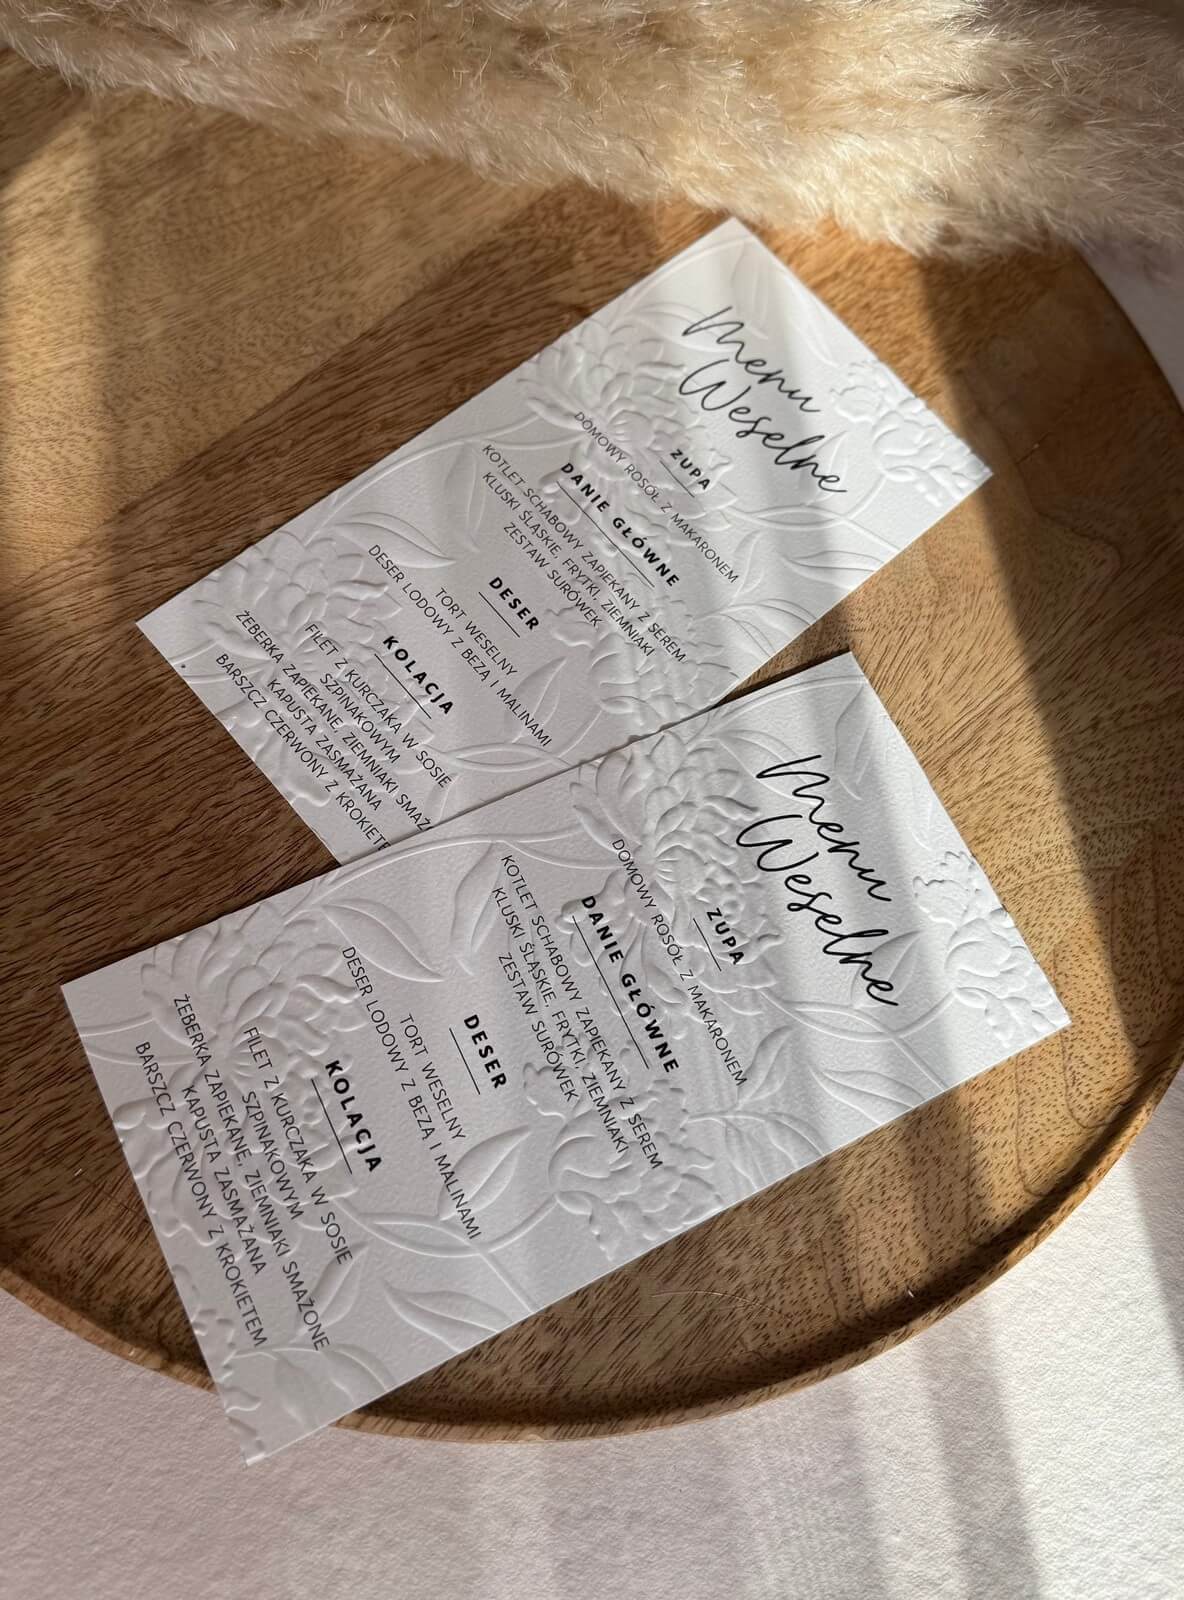 Menu
Weselne
ZUPA
DOMOWY ROSÓŁ Z MAKARONEM
DANIE GŁÓWNE
KOTLET SCHABOWY ZAPIEKANY Z SEREM
KLUSKI ŚLĄSKIE, FRYTKI, ZIEMNIAKI
ZESTAW SURÓWEK
DESER
TORT WESELNY
DESER LODOWY Z BEZĄ I MALINAMI
KOLACJA
FILET Z KURCZAKA W SOSIE
SZPINAKOWYM
ŻEBERKA ZAPIEKANE, ZIEMNIAKI SMAŻ
KAPUSTA ZASMAŻANA
BARSZCZ CZERWONY Z KROKIETE
Menu
Weselne
ZUPA
DOMOWY ROSÓŁ Z MAKARONEM
DANIE GŁÓWNE
KOTLET SCHABOWY ZAPIEKANY Z SEREM
KLUSKI ŚLĄSKIE, FRYTKI, ZIEMNIAKI
ZESTAW SURÓWEK
DESER
TORT WESELNY
DESER LODOWY Z BEZĄ I MALINAMI
KOLACJA
FILET Z KURCZAKA W SOSIE
SZPINAKOWYM
ŻEBERKA ZAPIEKANE, ZIEMNIAKI SMAŻONE
KAPUSTA ZASMAŻANA
BARSZCZ CZERWONY Z KROKIETEM